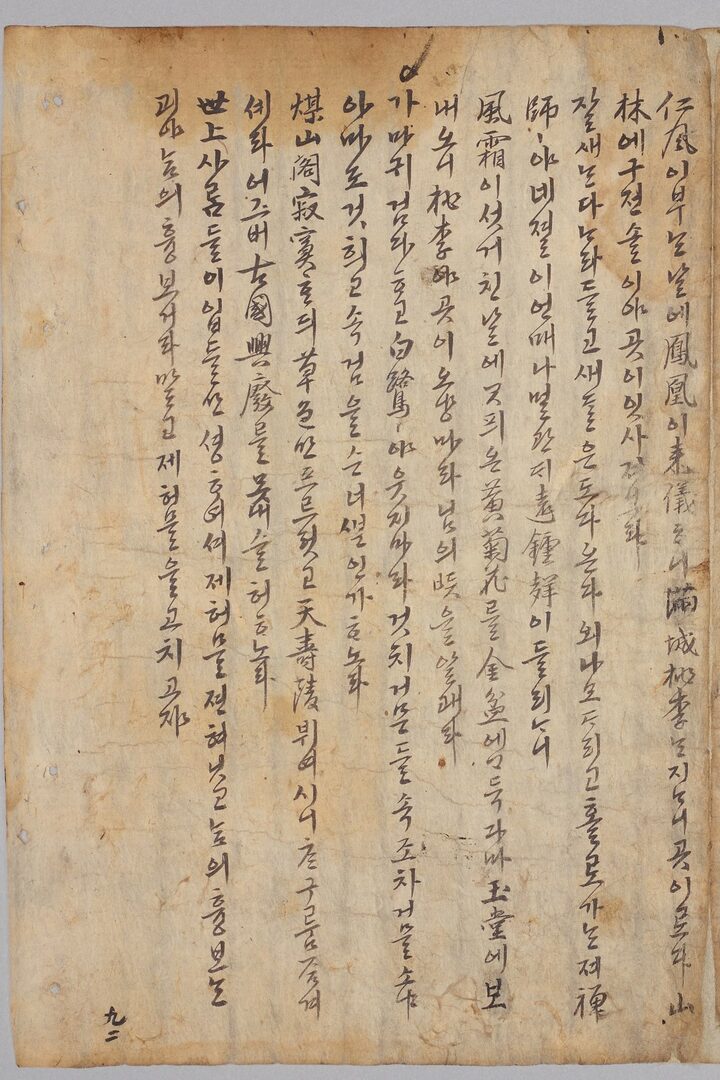 仁風이부ᄂᆞᆫ날에鳳凰이來儀ᄒᆞ니滿城桃李ᄂᆞᆫ지ᄂᆞ니곳이로다山
林에구젼솔이야곳이잇사
잘새ᄂᆞᆫ다ᄂᆞ라들고새ᄃᆞᆯ은도다온다외나모ᄃᆞ리고홀로가ᄂᆞᆫ져禪
師ㅣ야네졀이언매나멀관ᄃᆡ遠鍾聲이들리ᄂᆞ니
風霜이섯거친날에ᄀᆞᆺ픠온黃菊花를金盆에ᄀᆞ득다마玉堂에보
내오니桃李야곳이오냥마라님의ᄯᅳᆺ을알괘라
가마귀검다ᄒᆞ고白鷺ㅣ야웃지마라것치거믄들속조차거믈손냐
아마도것희고속검을손너ᄲᅮᆫ인가ᄒᆞ노라
煤山閣寂寞ᄒᆞᆫᄃᆡ草色만프르럿고天壽陵뷔여시니ᄎᆞᆫ구름ᄌᆞᆷ겨
셰라어즈버古國興廢를못내슬허ᄒᆞ노라
世上사ᄅᆞᆷ들이입들만셩ᄒᆞ여셔제허믈젼혀닛고ᄂᆞᆷ의흉보ᄂᆞᆫ
괴야ᄂᆞᆷ의흉보거라말고제허믈을고치고쟈
九二